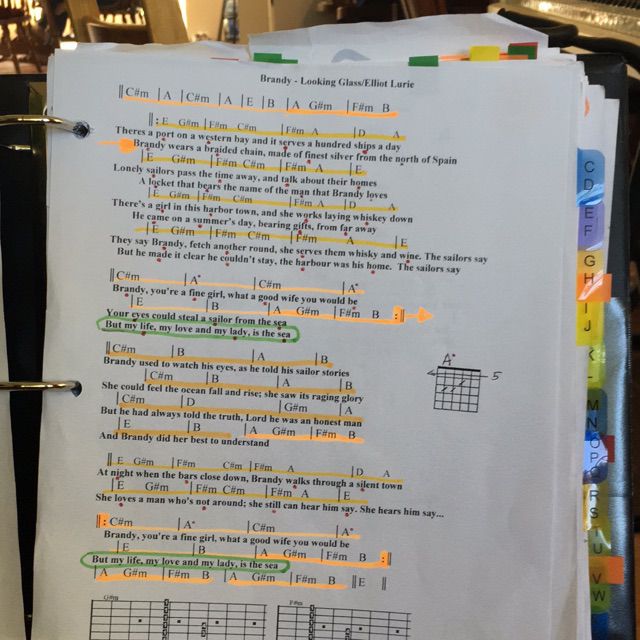 Brandy - Looking Glass/Elliot Lurie
‖C#m | A | C#m | A | E | B | A G#m | F#m B
‖: E G#m | F#m C#m | F#m A | D A
Theres a port on a western bay and it serves a hundred ships a day
Brandy wears a braided chain, made of finest silver from the north of Spain
| E G#m | F#m C#m | F#m A | E
Lonely sailors pass the time away, and talk about their homes
A locket that bears the name of the man that Brandy loves
| E G#m | F#m C#m | F#m A | D A
There's a girl in this harbor town, and she works laying whiskey down
He came on a summer's day, bearing gifts, from far away
| E G#m | F#m C#m | F#m A | E
They say Brandy, fetch another round, she serves them whisky and wine. The sailors say
But he made it clear he couldn't stay, the harbour was his home. The sailors say
‖C#m | A* | C#m | A*
Brandy, you're a fine girl, what a good wife you would be
| E | B | A G#m | F#m B :‖
Your eyes could steal a sailor from the sea
But my life, my love and my lady, is the sea
‖C#m | B | A | B
Brandy used to watch his eyes, as he told his sailor stories
| C#m | B | A | B
She could feel the ocean fall and rise; she saw its raging glory
| C#m | D | G#m | A
But he had always told the truth, Lord he was an honest man
| E | B | A G#m | F#m B
And Brandy did her best to understand
‖ E G#m | F#m C#m | F#m A | D A
At night when the bars close down, Brandy walks through a silent town
| E G#m | F#m C#m | F#m A | E
She loves a man who's not around; she still can hear him say. She hears him say...
‖: C#m | A* | C#m | A*
Brandy, you're a fine girl, what a good wife you would be
| E | B | A G#m | F#m B :‖
But my life, my love and my lady, is the sea
| A G#m | F#m B | A G#m | F#m B ‖E ‖
G#m F#m
A*
5
C
D
E
F
G
H
I
J
K
M
N
O
P
Q
R
S
T
U
V
W